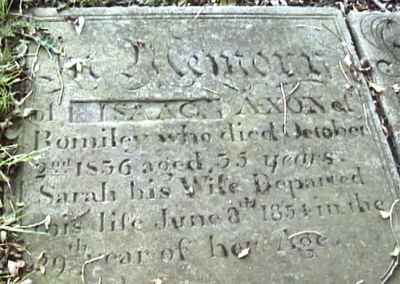 In Memory
of ISAAC AXON of
Romiley who died October
2nd 1856 aged 55 years.
Sarah his Wife Departed
this life June 8th 1854 in the
49th year of her Age.